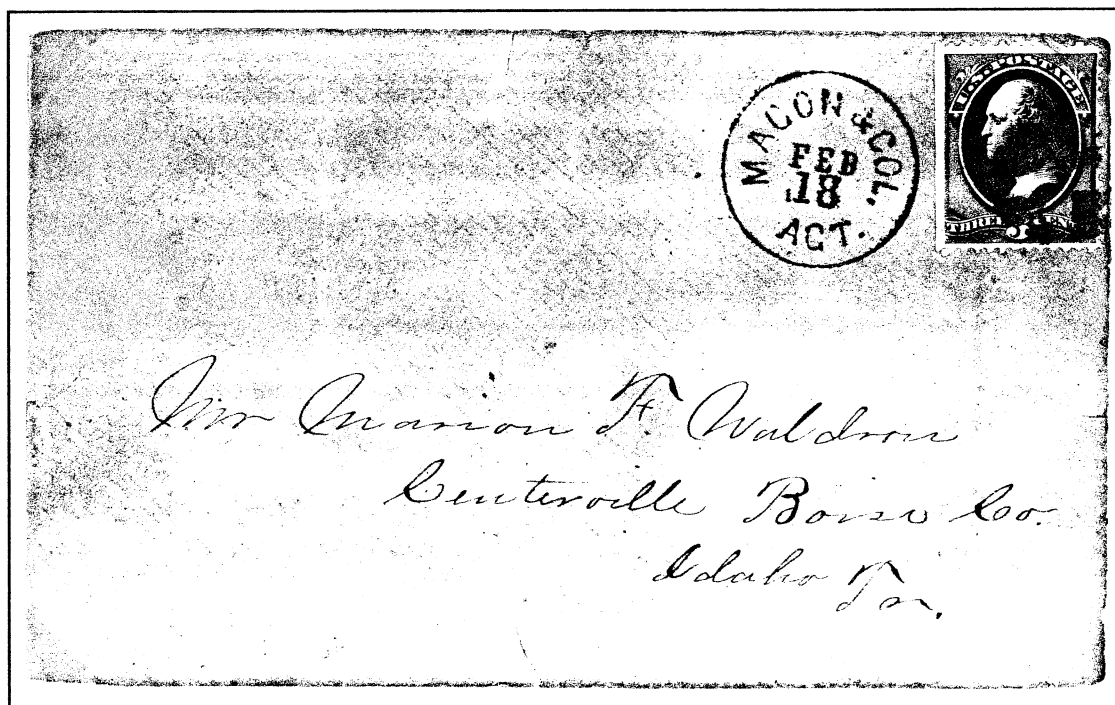 MACON & COL.
FEB
18
AGT.
U.S. POSTAGE
THREE 3 CENTS
Mr Marion F. Waldron
Centerville Boise Co.
Idaho Tr.